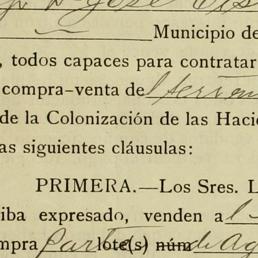 José
Municipio de
, todos capaces para contratar
compra-venta de l terren
de la Colonización de las Haci
as siguientes cláusulas:
PRIMERA.—Los Sres. L
iba expresado, venden a l
mpra parte lote(s) núm de Ag